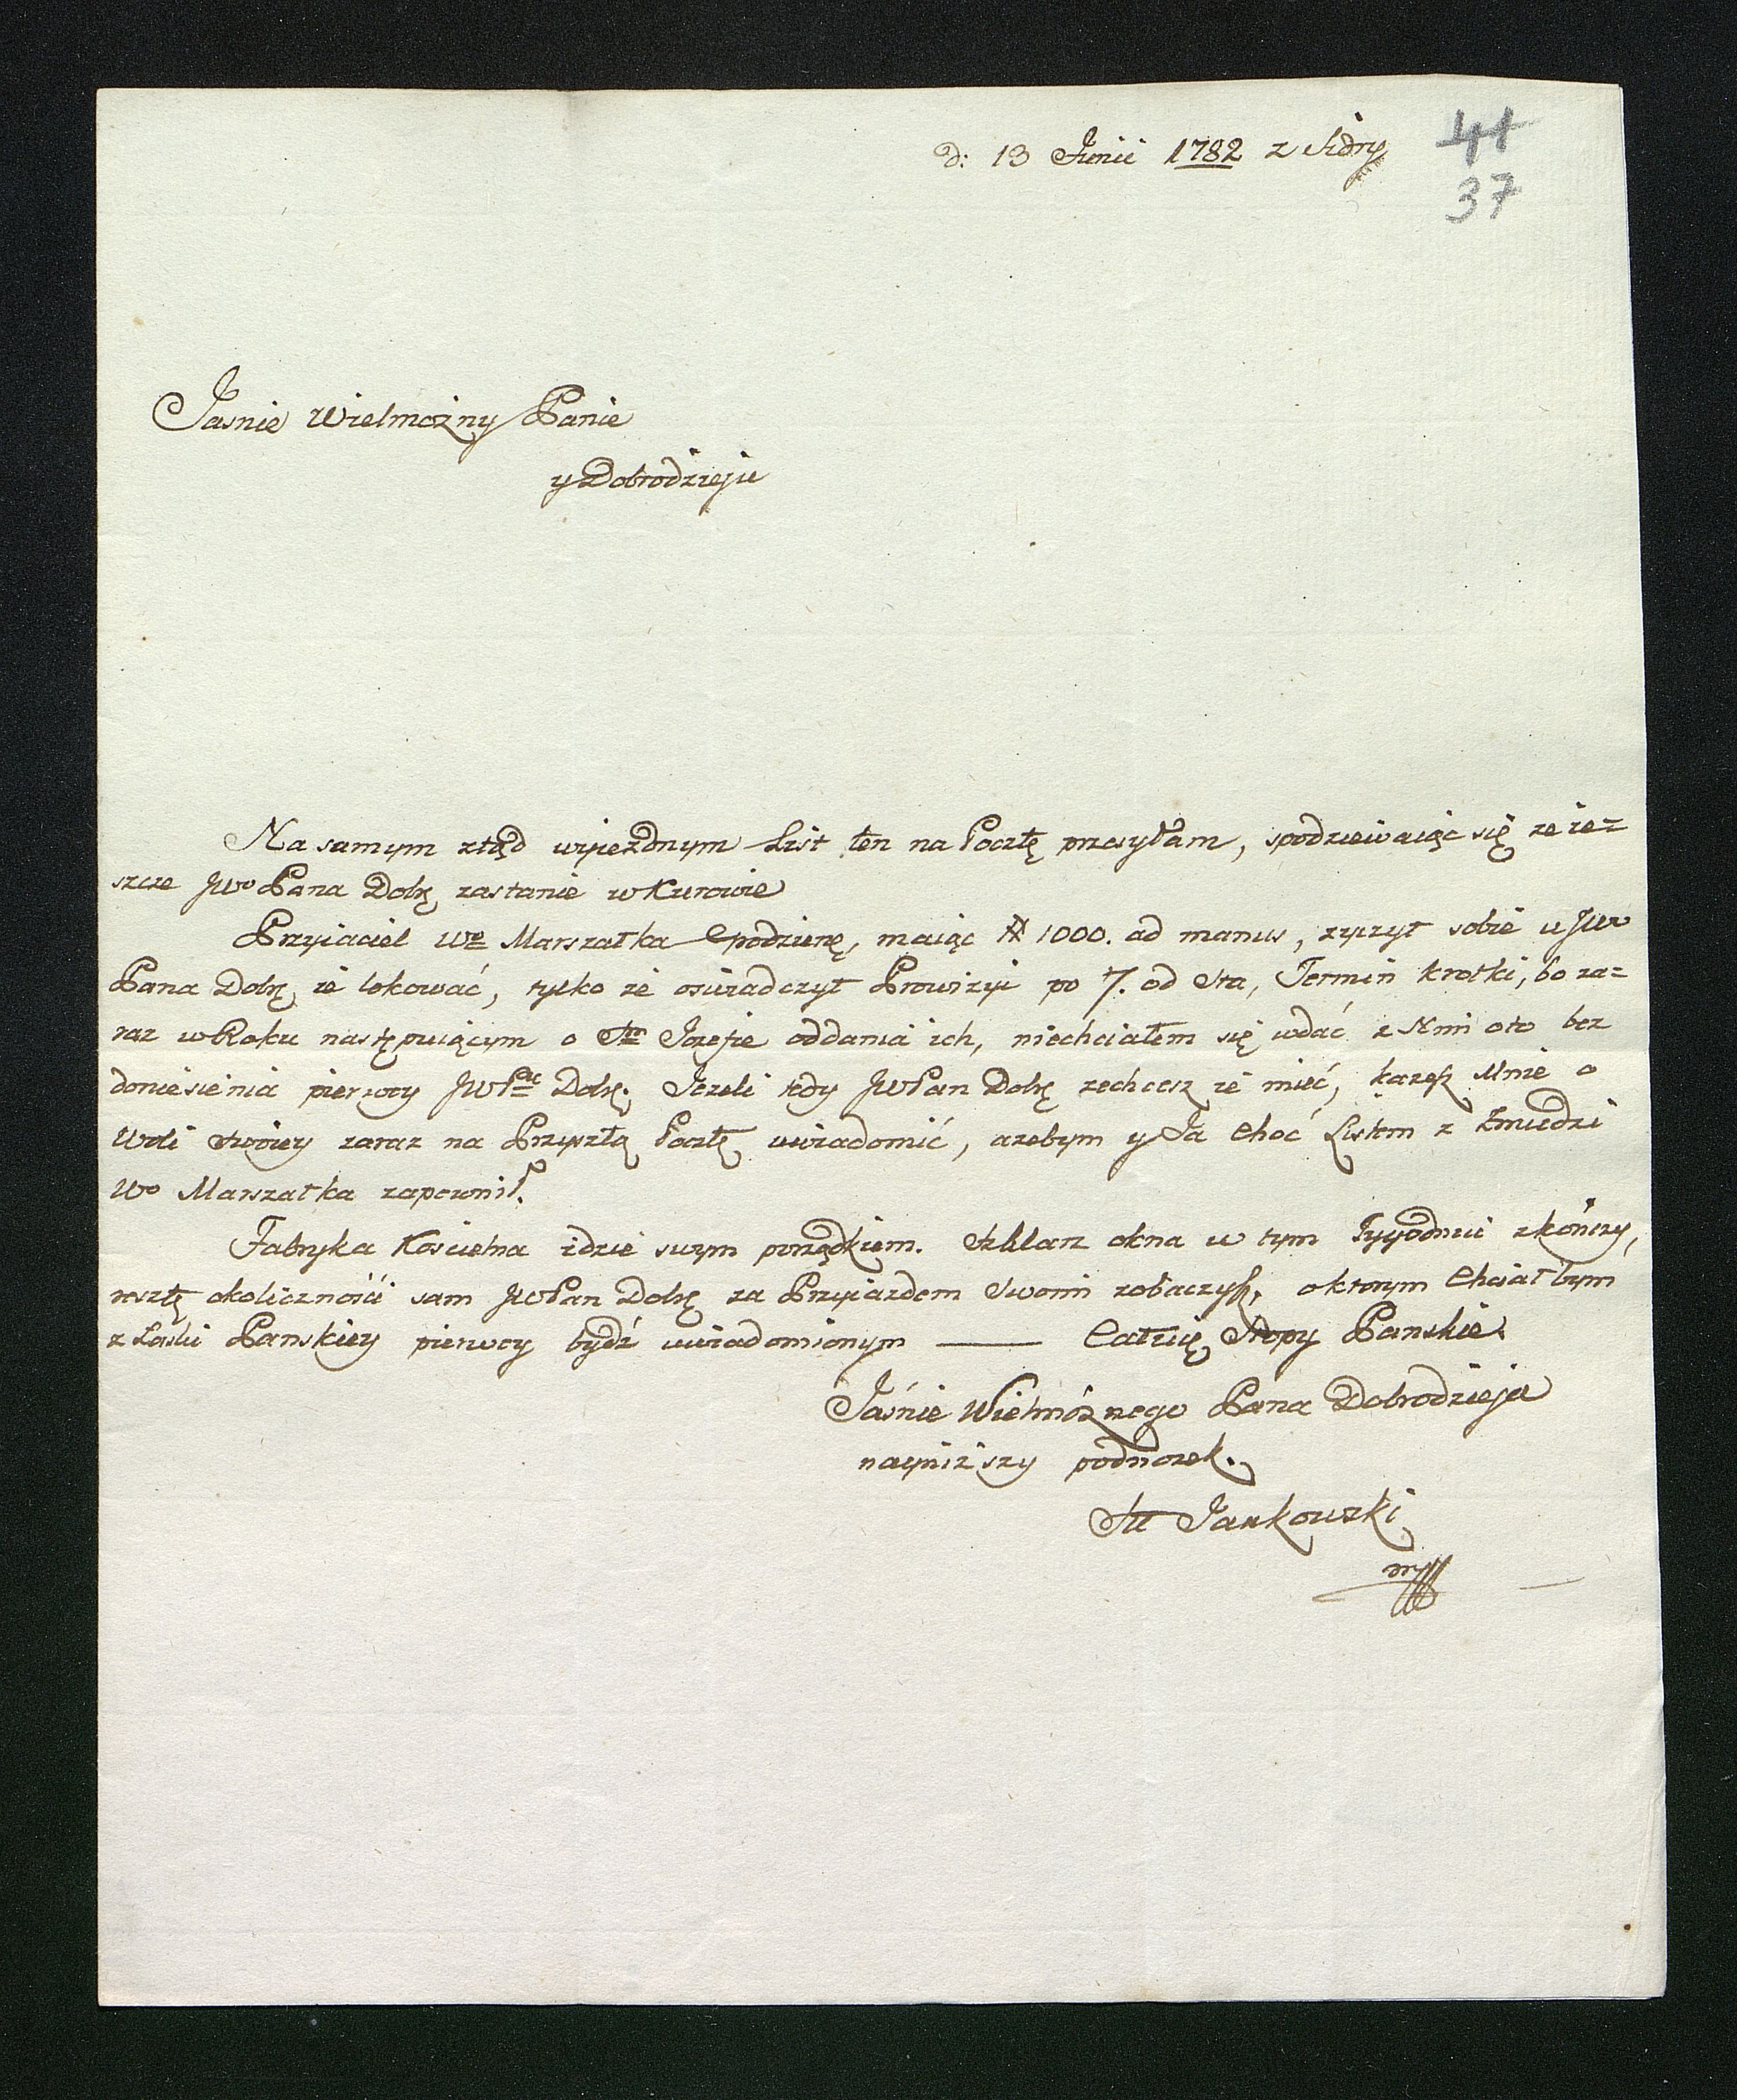 d: 13 Junii 1782 z Sidry
41
37
Jasnie Wielmozny Panie
y Dobrodzieju
Na samym ztąd wyiezdnym List ten na Pocztę przesyłam, spodziewaiąc się ze ie=
szcze JWo Pana Dobę zastanie w Kurowie
Przyiaciel We Marszałka, maiąc # 1000. ad manus, zyczył sobie u JWo
Pana Dobę ie lokować, tylko ze oswiadczył Prowizyi po 7. od Sta, Termin krotki, bo za=
raz w Roku następuiącym o Sm Jozefie oddania ich, niechciałem się wdać z Nim oto bez
doniesienia pierwey JWPu Dobę. Jezeli tedy JWPan Dobę zechcesz ie mieć, każesz Mnie o
Woli Swoiey zaraz na Przyszłą Pocztę uwiadomić, azebym y Ja Choć Listem z Zmudzi
Wo Marszałka zapewnił.
Fabryka Koscielna idzie swym porządkiem. Szklarz okna w tym Tygodniu zkończy,
resztę okoliczności sam JWPan Dobę za Przyiazdem Swoim zobaczysz, o ktorym Chciał bym
z Łaski Panskiey pierwey bydź uwiadomionym —— Całuię Stopy Panskie.
Jaśnie Wielmóznego Pana Dobrodzieja
nayniższy podnozek.
St Jankowski
mp